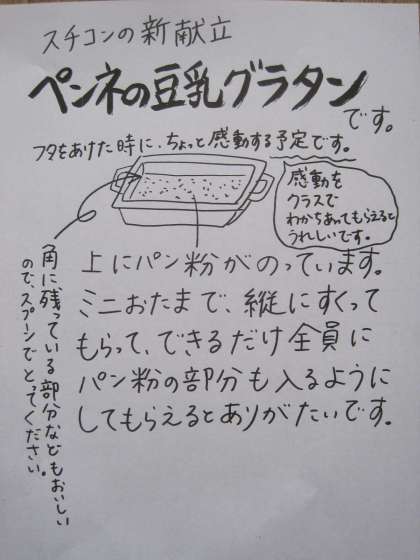 スチコンの新献立
ペンネの豆乳グラタン
です。
フタをあけた時に、ちょっと感動する予定です。
感動を
クラスで
わかちあってもらえると
うれしいです。
上にパン粉がのっています。
ミニおたまで、縦にすくって
もらって、できるだけ全員に
パン粉の部分も入るように
してもらえるとありがたいです。
角に残っている部分などもおいしい
ので、スプーンでとってください。